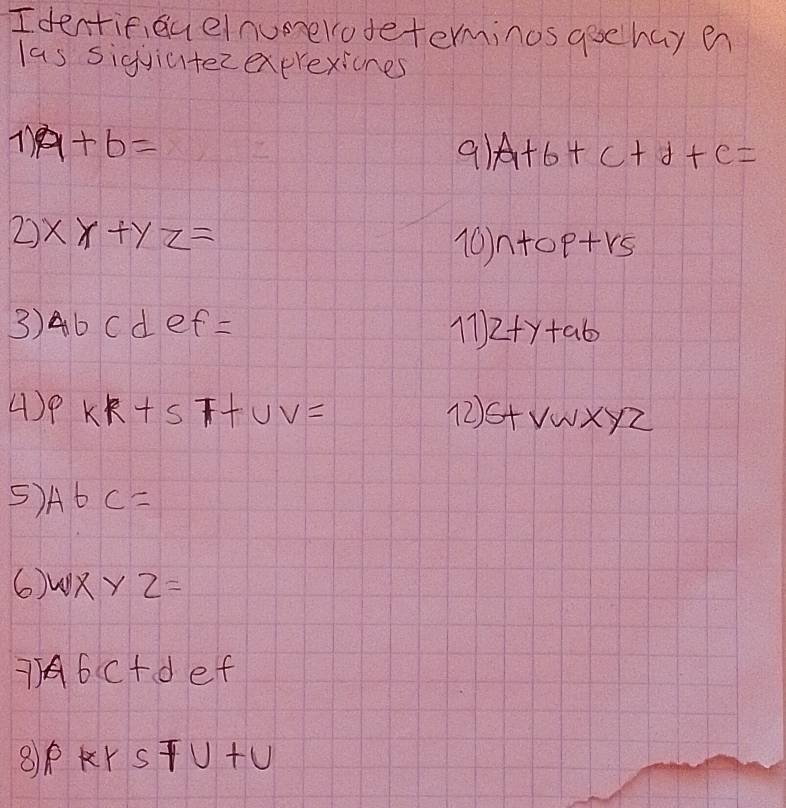 Identifiqu el numero determinos que hay en
las siguintez exprexiones
1) A + b =
2) X Y + Y Z =
3) A b c d e f =
4) P K R + S T + U V =
5) A b c =
6) W X Y Z =
7) A b c + d e f
8) P K r S T U + U
9) A + b + c + d + e =
10) n + o p + r s
11) z + y + a b
12) 6 + V W X Y Z